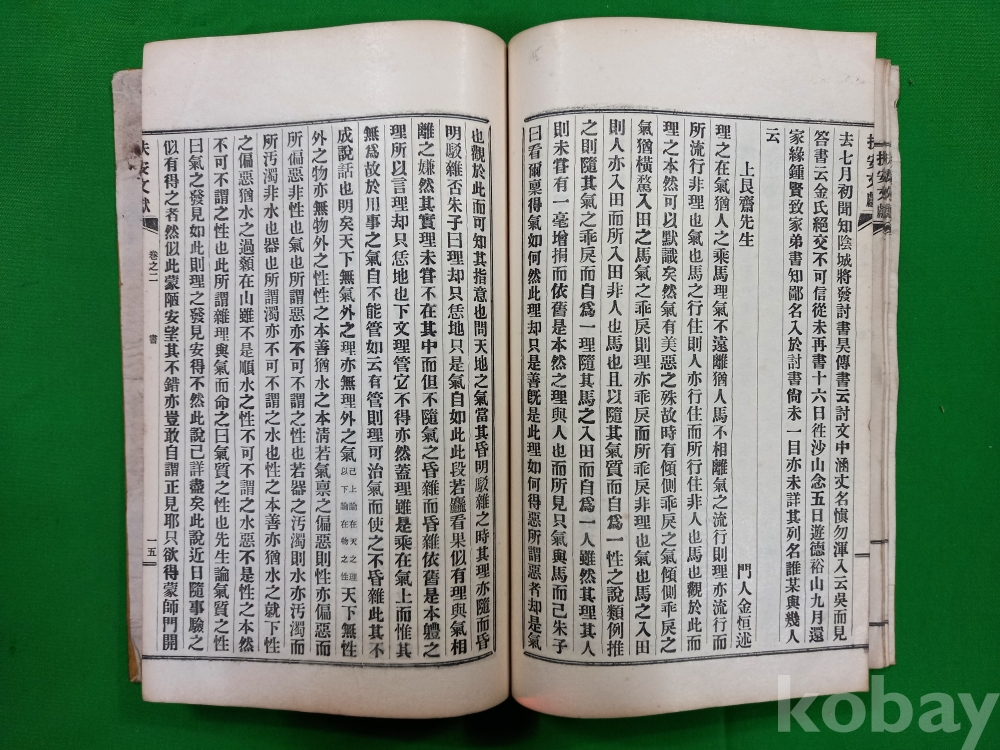 扶安文獻
去七月初聞知陰城將發討書吳傳書云討文中涵丈名愼勿渾入云吳而見
答書云金氏絕交不可信從未再書十六日徃沙山念五日遊德裕山九月還
家緣鍾賢致家弟書知鄙名入於討書尙未一目亦未詳其列名誰某與幾人
云
上艮齋先生
門人金恒述
理之在氣猶人之乘馬理氣不遠離猶人馬不相離氣之流行則理亦流行而
所流行非理也氣也馬之行住則人亦行住而所行住非人也馬也觀於此而
理之本然可以默識矣然氣有美惡之殊故時有傾側乖戾之氣傾側乖戾之
氣猶橫騖入田之馬氣之乖戾則理亦乖戾而所乖戾非理也氣也馬之入田
則人亦入田而所入田非人也馬也且以隨其氣質而自爲一性之說類例推
之則隨其氣之乖戾而自爲一理隨其馬之入田而自爲一人雖然其理其人
則未甞有一毫增捐而依舊是本然之理與人也而所見只氣與馬而已朱子
曰看爾稟得氣如何然此理却只是善旣是此理如何得惡所謂惡者却是氣
也觀於此而可知其指意也問天地之氣當其昏明駁雜之時其理亦隨而昏
明駁雜否朱子曰理却只恁地只是氣自如此此段若麤看果似有理與氣相
離之嫌然其實理未甞不在其中而但不隨氣之昏雜而昏雜依舊是本軆之
理所以言理却只恁地也下文理管它不得亦然蓋理雖是乘在氣上而惟其
無爲故於用事之氣自不能管如云有管則理可治氣而使之不昏雜此其不
成說話也明矣天下無氣外之理亦無理外之氣已上論在天之理以下論在物之性天下無性
外之物亦無物外之性性之本善猶水之本淸若氣禀之偏惡而性亦偏惡而
所偏惡非性也氣也所謂惡亦不可不謂之性也若器之汚濁則水亦汚濁而
所汚濁非水也器也所謂濁亦不可不謂之水也性之本善亦猶水之就下性
之偏惡猶水之過顙在山雖不是順水之性不可不謂之水惡不是性之本然
不可不謂之性也此所謂雜理與氣而命之曰氣質之性也先生論氣質之性
曰氣之發見如此則理之發見安得不然此說已詳盡矣此說近日隨事驗之
似有得之者然似此蒙陋安望其不錯亦豈敢自謂正見耶只欲得蒙師門開
扶安文獻 卷之二 書 一五
kobay